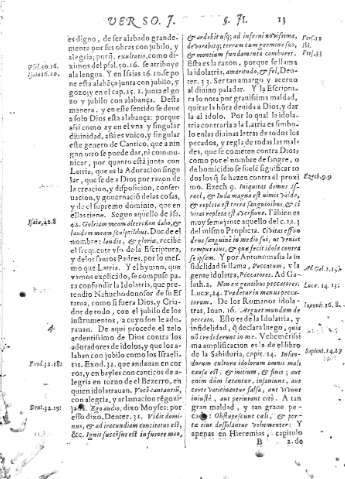 VERSO. 7. §. II. 13
es digno, de ser alabado grande-
mente por sus obras con jubilo, y
alegria; porq̃. exultatio, como di-
ximos psal. 50. 16. se atribuye
a la lengua. Y en Isaias 16. 10. se po
ne esta alabãça junta con el
gozo; y en el cap. 35. junta el go
zo y jubilo con alabança. Desta
manera, y en este sentido se deue
a solo Dios esta alabança: porque
assi como ay en el vna y singular
diuinidad, assi es vnico, y singular
este genero de Cantico, que a nin
gun otro se puede dar, ni comu-
nicar, por quanto està junta con
Latria, que es la Adoracion singu
lar, que se dè a Dios por razon de
la creacion, y disposicion, conser-
uacion, y gouernacion de las cosas,
y de el supremo dominio, que en
ellas tiene. Segun aquello de Isai.
42. Gloriam meam alteri non dabo, &
laudem meam sculptilibus. Donde el
nombre; laudis, & gloriæ, recibe
el
y de los santos Padres, por lo mes-
mo que Latria. Y el hymno, que
vamos explicado, se compuso pa
ra confundir la Idolatria, que pre-
tendio Nabuchodonosor de su Es
tatua, como si fuera Dios, y Cria-
dor de todo, con el jubilo de los
instrumentos, a cuyo son le ado-
rauan. De aqui procede el zelo
ardentissimo de Dios contra los
adoradores de idolos, y que los a-
laben con jubilo como los Israeli-
tas. Exod. 32. que andauan en co-
ros, y en bayles con canticos de a-
legria en torno de el Bezerro, en
quien idolatrauan. Vocẽ cantantiũ,
con alegria, y aclamacion regozi-
jada. Ego audio, dixo Moyses: por
esso dixo, Deuter. 32. Vidit domi-
nus, & ad iracundiam concitatus est,
&c. Ignis succensus est in furore meo,
& ardebit vsq; ad inferni nouissima,
deuorabitq; terram cum germine suo,
& montium fundamenta comburet.
Esta es la razon, porque se llama
la idolatria, amaritudo, & fel, Deu-
ter. 32. Ser tan amarga y azerua
al diuino paladar. Y la Escritu-
ra lo nota por grauissima maldad,
quitar la hõra deuida a Dios, y dar
la al idolo. Por lo qual la idola-
tria contraria a la Latria es simbo-
lo en las diuinas letras de todos los
pecados, y regla de todas las mal-
dades, que se cometen contra Dios:
como por el nombre de sangre, o
de homicidio se suele significar to
dos los q̃ se hazen contra el proxi
mo. Ezech. 9. Iniquitas domus Is-
rael, & Iuda magna est nimis valde,
& repleta est terra sanguinibus, & ci
uitas repleta est auersione. Tãbien es
muy semejante aquello del c. 22. 3
del mismo Propheta. Ciuitas effun
dens sanguinem in medio sui, vt veniat
tempus eius, & quæ fecit idola contra
se ipsam. Y por Antonomasia la in
fidelidad se llama, Peccatum, y la
gente idolatra, Peccatores. Ad Ga-
lath. 2. Non ex gentibus peccatores.
Luc. 24. Tradetur in manus pecca-
torum. De los Romanos idola-
tras, Ioan. 16. Arguet mundum de
peccato. Esto es de la Idolatria, y
infidelidad, q̃ declara luego, quia
non crediderunt in me. Vehemẽtissi
ma amplificacion es la de el libro
de la Sabiduria, cap. 14. Infan-
dorum cultura idolorum omnis mali
causa est: & initium, & finis; aut
enim dum lætantur, insaniunt, aut
certe vaticinantur falsa, aut viuunt
iniustè, aut peierant citò. A tan
gran maldad, y tan gran pe-
cado: Obstupescite cæli, & por-
tæ eius desolamini vehementer: Y
apenas en Hieremias, capitulo
B 2. de
Isaiæ, 42. 8
Exod. 32. 18
Deut. 32. 19
Ezech. 9. 9
Ad Gal. 2. 15
Luc. 24.
Sapient. 14. 27